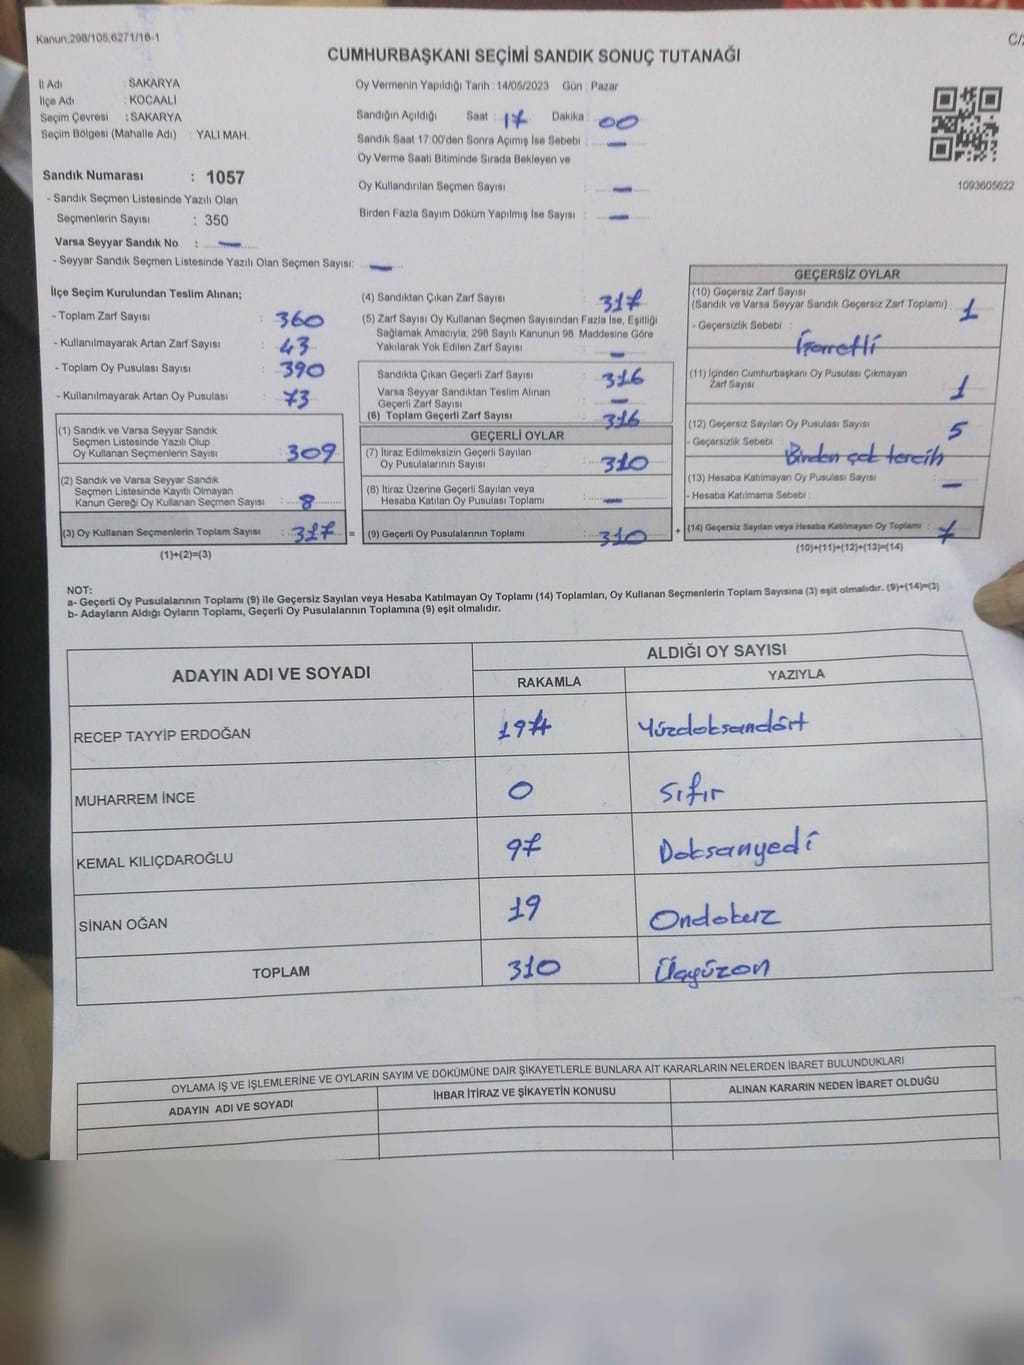 Kanun:298/105;6271/18-1
C/2
CUMHURBAŞKANI SEÇİMİ SANDIK SONUÇ TUTANAĞI
İl Adı : SAKARYA
İlçe Adı : KOCAALİ
Seçim Çevresi : SAKARYA
Seçim Bölgesi (Mahalle Adı) : YALI MAH.
Oy Vermenin Yapıldığı Tarih : 14/05/2023 Gün : Pazar
Sandığın Açıldığı Saat : 17 Dakika : 00
Sandık Saat 17:00'den Sonra Açımış İse Sebebi : —
Oy Verme Saati Bitiminde Sırada Bekleyen ve
Oy Kullandırılan Seçmen Sayısı : —
Birden Fazla Sayım Döküm Yapılmış İse Sayısı : —
1093605622
Sandık Numarası : 1057
- Sandık Seçmen Listesinde Yazılı Olan
Seçmenlerin Sayısı : 350
Varsa Seyyar Sandık No : —
- Seyyar Sandık Seçmen Listesinde Yazılı Olan Seçmen Sayısı: —
İlçe Seçim Kurulundan Teslim Alınan;
- Toplam Zarf Sayısı : 360
- Kullanılmayarak Artan Zarf Sayısı : 43
- Toplam Oy Pusulası Sayısı : 390
- Kullanılmayarak Artan Oy Pusulası : 73
(1) Sandık ve Varsa Seyyar Sandık
Seçmen Listesinde Yazılı Olup
Oy Kullanan Seçmenlerin Sayısı : 309
(2) Sandık ve Varsa Seyyar Sandık
Seçmen Listesinde Kayıtlı Olmayan
Kanun Gereği Oy Kullanan Seçmen Sayısı : 8
(3) Oy Kullanan Seçmenlerin Toplam Sayısı : 317 =
(1)+(2)=(3)
(4) Sandıktan Çıkan Zarf Sayısı : 317
(5) Zarf Sayısı Oy Kullanan Seçmen Sayısından Fazla İse, Eşitliği
Sağlamak Amacıyla; 298 Sayılı Kanunun 98. Maddesine Göre
Yakılarak Yok Edilen Zarf Sayısı : —
Sandıkta Çıkan Geçerli Zarf Sayısı : 316
Varsa Seyyar Sandıktan Teslim Alınan
Geçerli Zarf Sayısı : —
(6) Toplam Geçerli Zarf Sayısı : 316
GEÇERLİ OYLAR
(7) İtiraz Edilmeksizin Geçerli Sayılan
Oy Pusulalarının Sayısı : 310
(8) İtiraz Üzerine Geçerli Sayılan veya
Hesaba Katılan Oy Pusulası Toplamı : —
(9) Geçerli Oy Pusulalarının Toplamı : 310 +
GEÇERSİZ OYLAR
(10) Geçersiz Zarf Sayısı
(Sandık ve Varsa Seyyar Sandık Geçersiz Zarf Toplamı) : 1
- Geçersizlik Sebebi : İşaretli
(11) İçinden Cumhurbaşkanı Oy Pusulası Çıkmayan
Zarf Sayısı : 1
(12) Geçersiz Sayılan Oy Pusulası Sayısı : 5
- Geçersizlik Sebebi : Birden çok tercih
(13) Hesaba Katılmayan Oy Pusulası Sayısı : —
- Hesaba Katılmama Sebebi :
(14) Geçersiz Sayılan veya Hesaba Katılmayan Oy Toplamı : 7
(10)+(11)+(12)+(13)=(14)
NOT:
a- Geçerli Oy Pusulalarının Toplamı (9) ile Geçersiz Sayılan veya Hesaba Katılmayan Oy Toplamı (14) Toplamları, Oy Kullanan Seçmenlerin Toplam Sayısına (3) eşit olmalıdır. (9)+(14)=(3)
b- Adayların Aldığı Oyların Toplamı, Geçerli Oy Pusulalarının Toplamına (9) eşit olmalıdır.
ADAYIN ADI VE SOYADI ALDIĞI OY SAYISI
RAKAMLA YAZIYLA
RECEP TAYYİP ERDOĞAN 194 Yüzdoksandört
MUHARREM İNCE 0 sıfır
KEMAL KILIÇDAROĞLU 97 Doksanyedi
SİNAN OĞAN 19 Ondokuz
TOPLAM 310 Üçyüzon
OYLAMA İŞ VE İŞLEMLERİNE VE OYLARIN SAYIM VE DÖKÜMÜNE DAİR ŞİKAYETLERLE BUNLARA AİT KARARLARIN NELERDEN İBARET BULUNDUKLARI
ADAYIN ADI VE SOYADI İHBAR İTİRAZ VE ŞİKAYETİN KONUSU ALINAN KARARIN NEDEN İBARET OLDUĞU